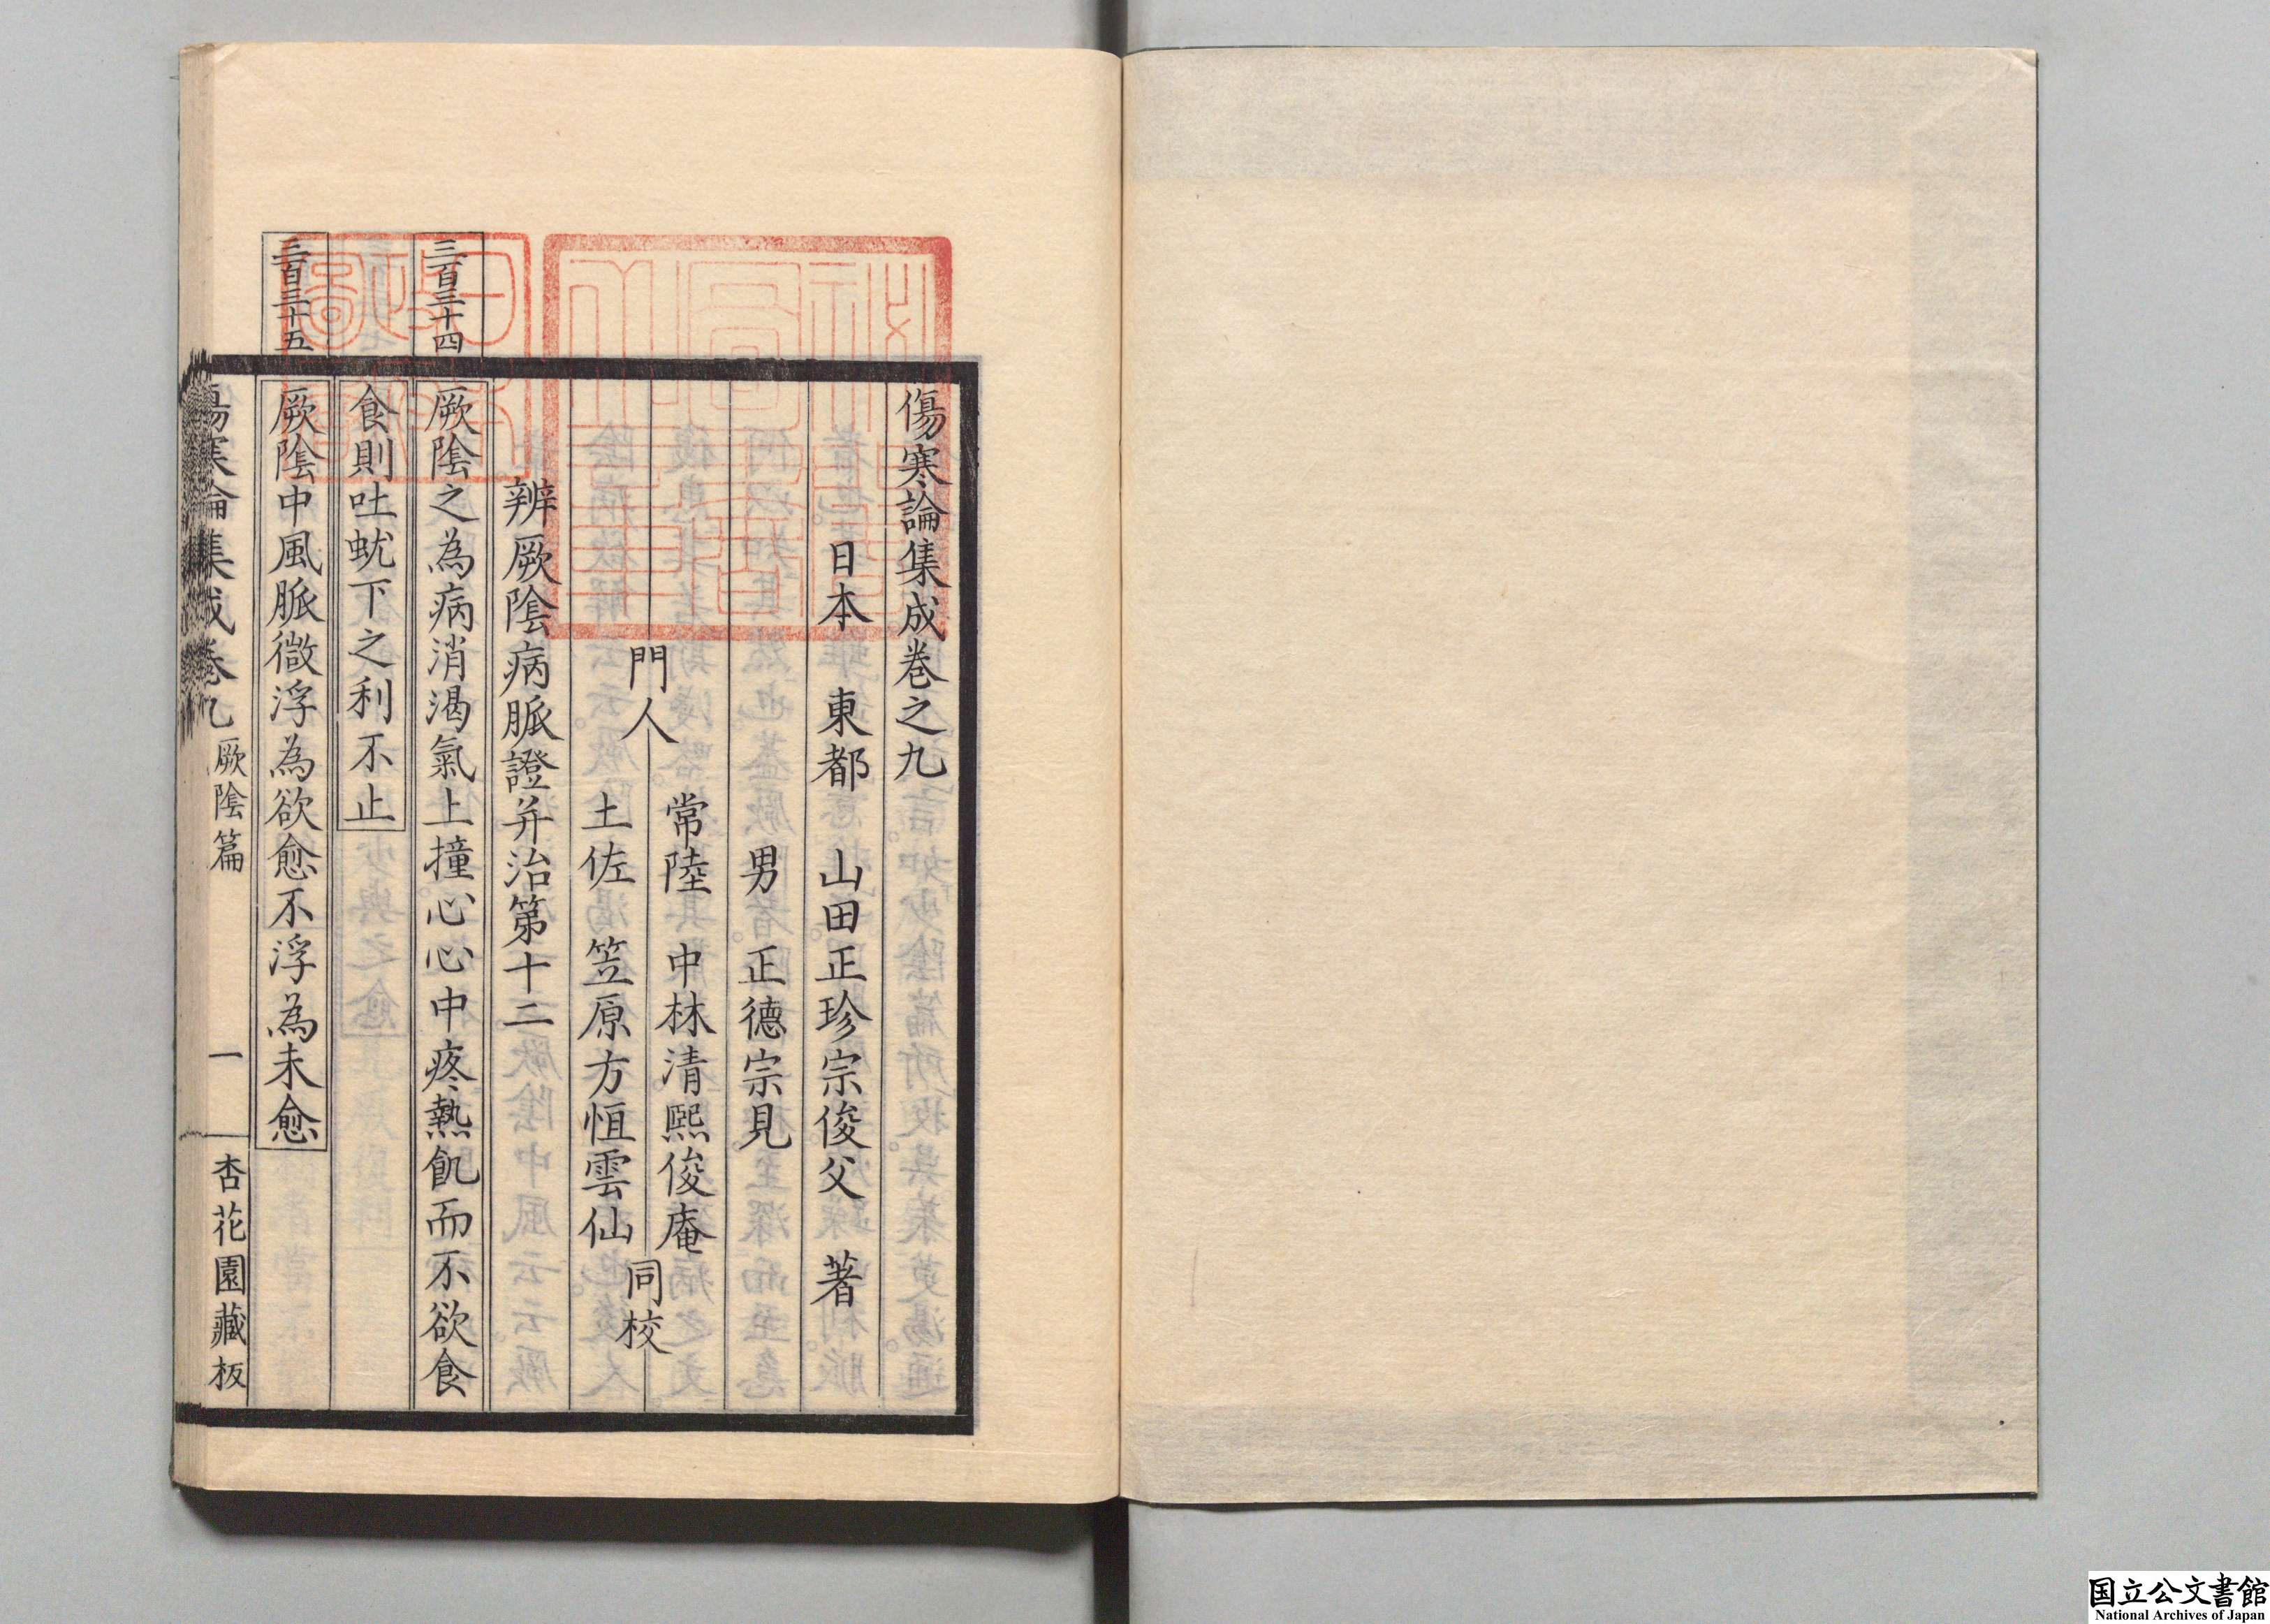 傷寒論集成卷之九
日本 東都 山田正珍宗俊父 著
男 正德宗見
門人
常陸 中林清熙俊庵
土佐 笠原方恒雲仙
同校
辨厥陰病脈證并治第十二
三百三十四
厥陰之為病消渴氣上撞心心中疼熱飢而不欲食
食則吐蚘下之利不止
三百三十五
厥陰中風脈微浮為欲愈不浮為未愈
傷寒論集成卷九 厥陰篇 一 杏花園藏板
国立公文書館
National Archives of Japan